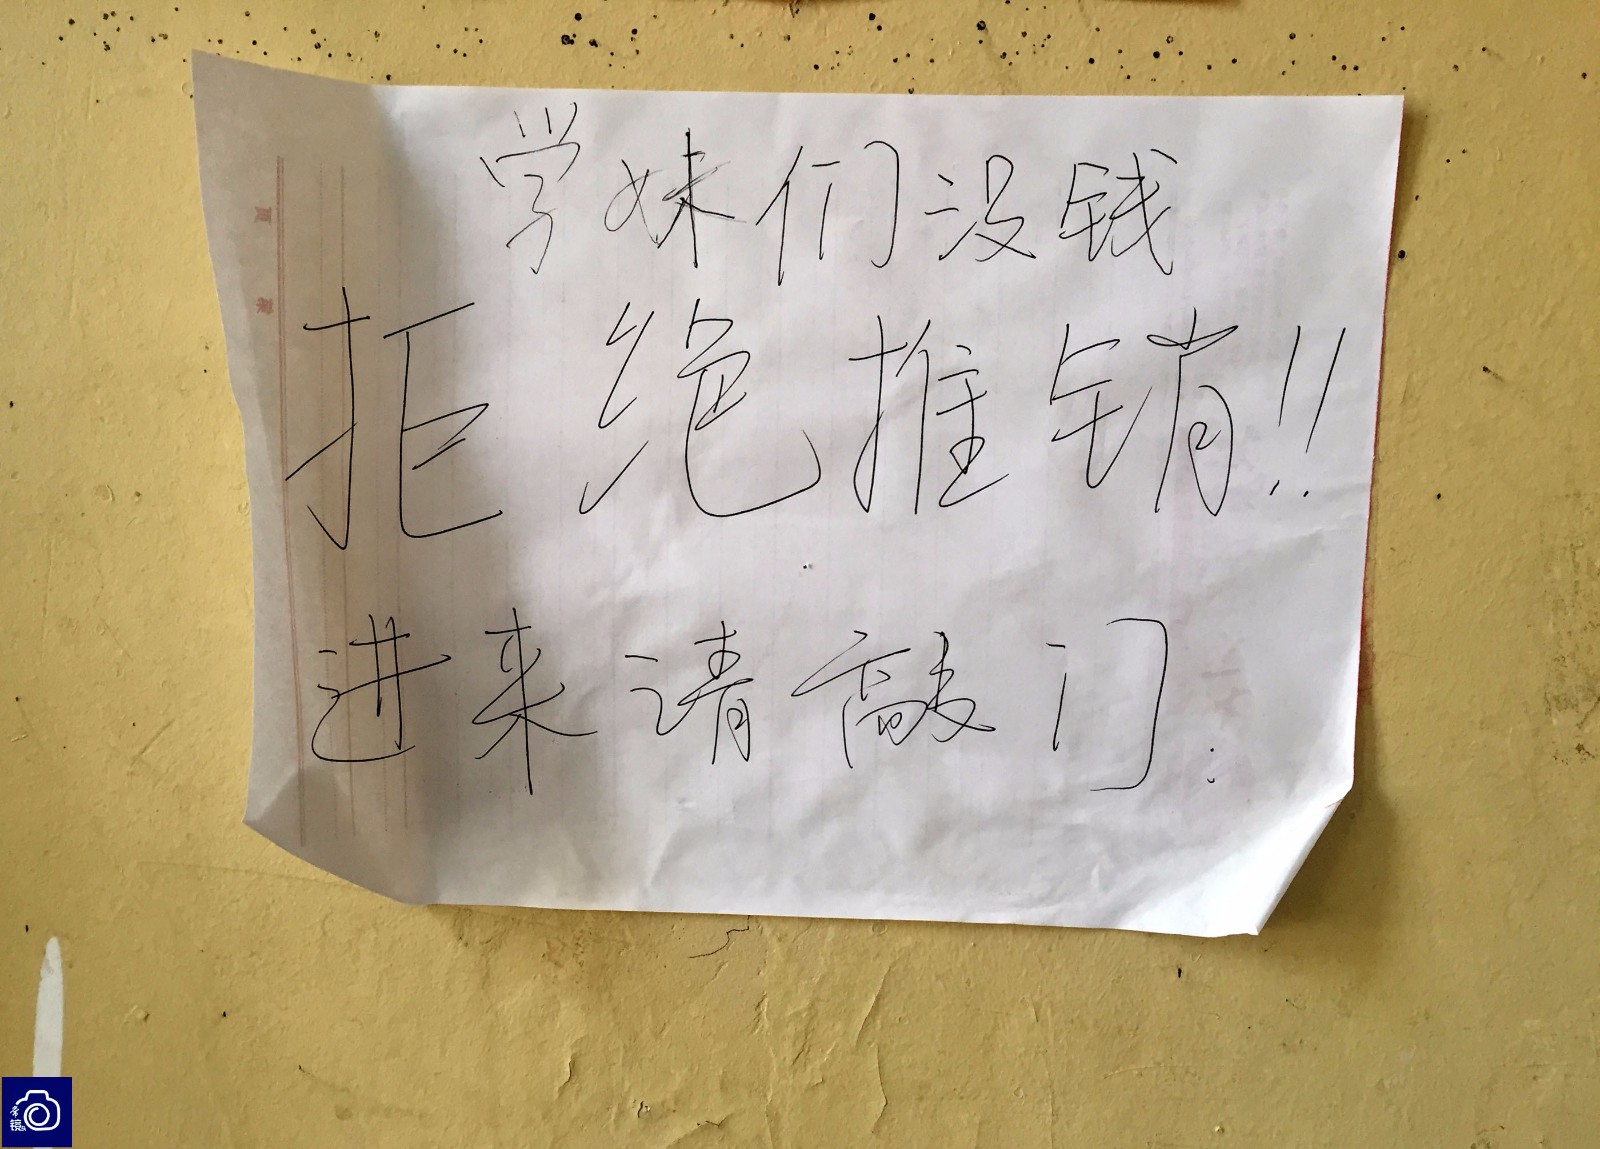 学妹们没钱
拒绝推销!!
进来请敲门.